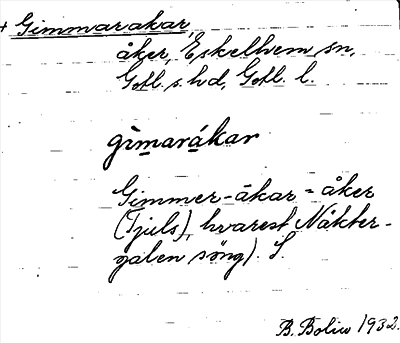 + Gimmarakar,
åker, Eskelhem sn,
Gotl. s. hd, Gotl. l.
gìmarákar
Gimmer-åkar = åker
(Tjuls), hvarest Näkter-
galen söng). S.
B. Bolin 1932.